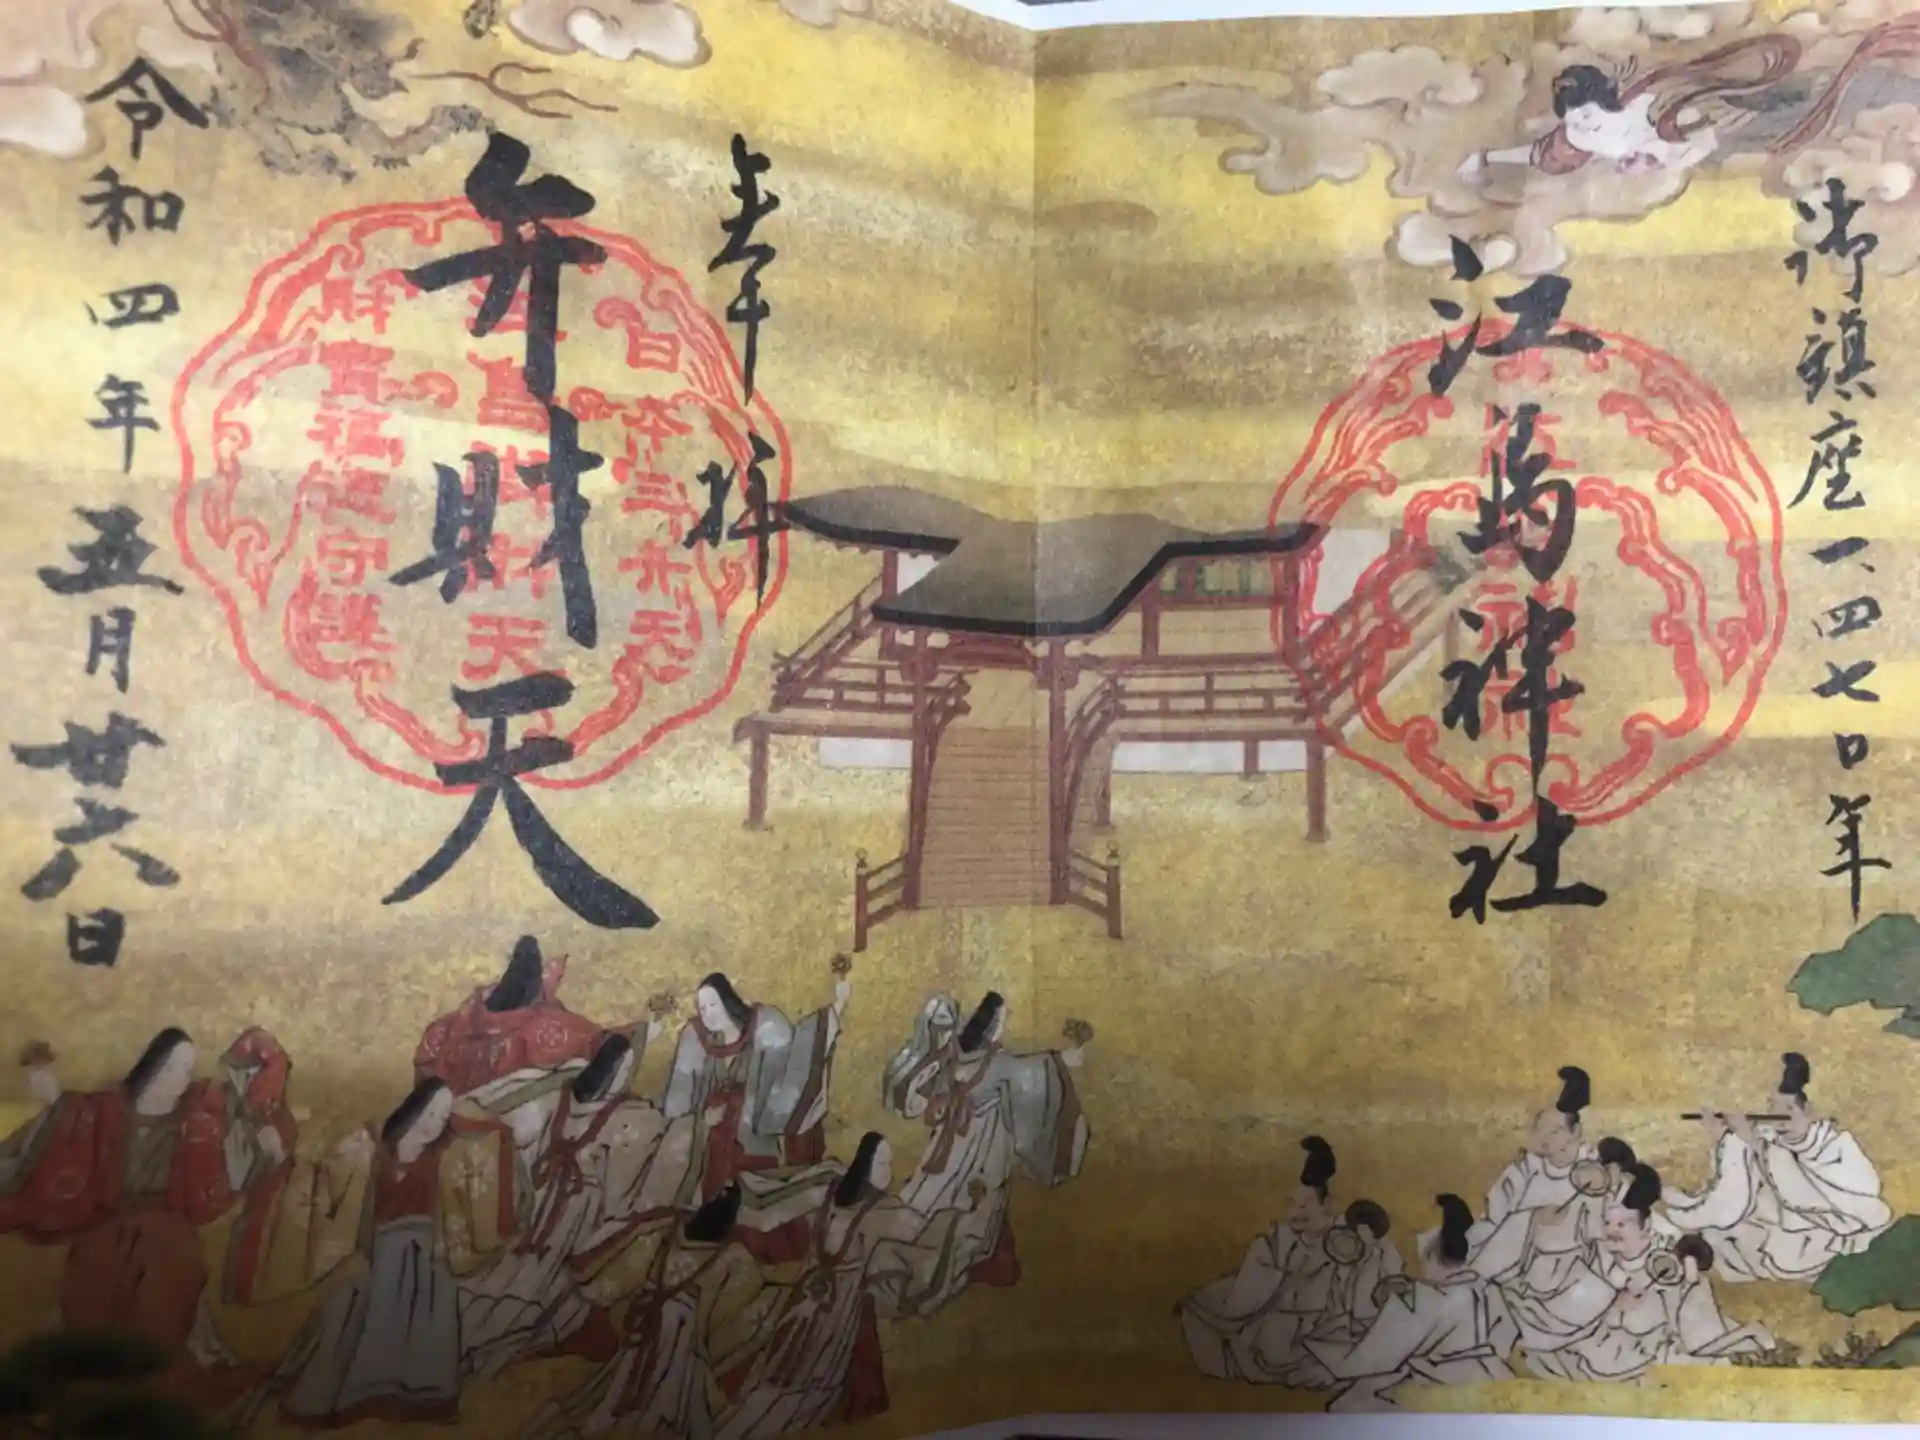 御鎮座一、四七〇年
江島神社
江島神社
奉拝
弁財天
日本三弁天
財寳福徳守護
令和四年五月廿六日